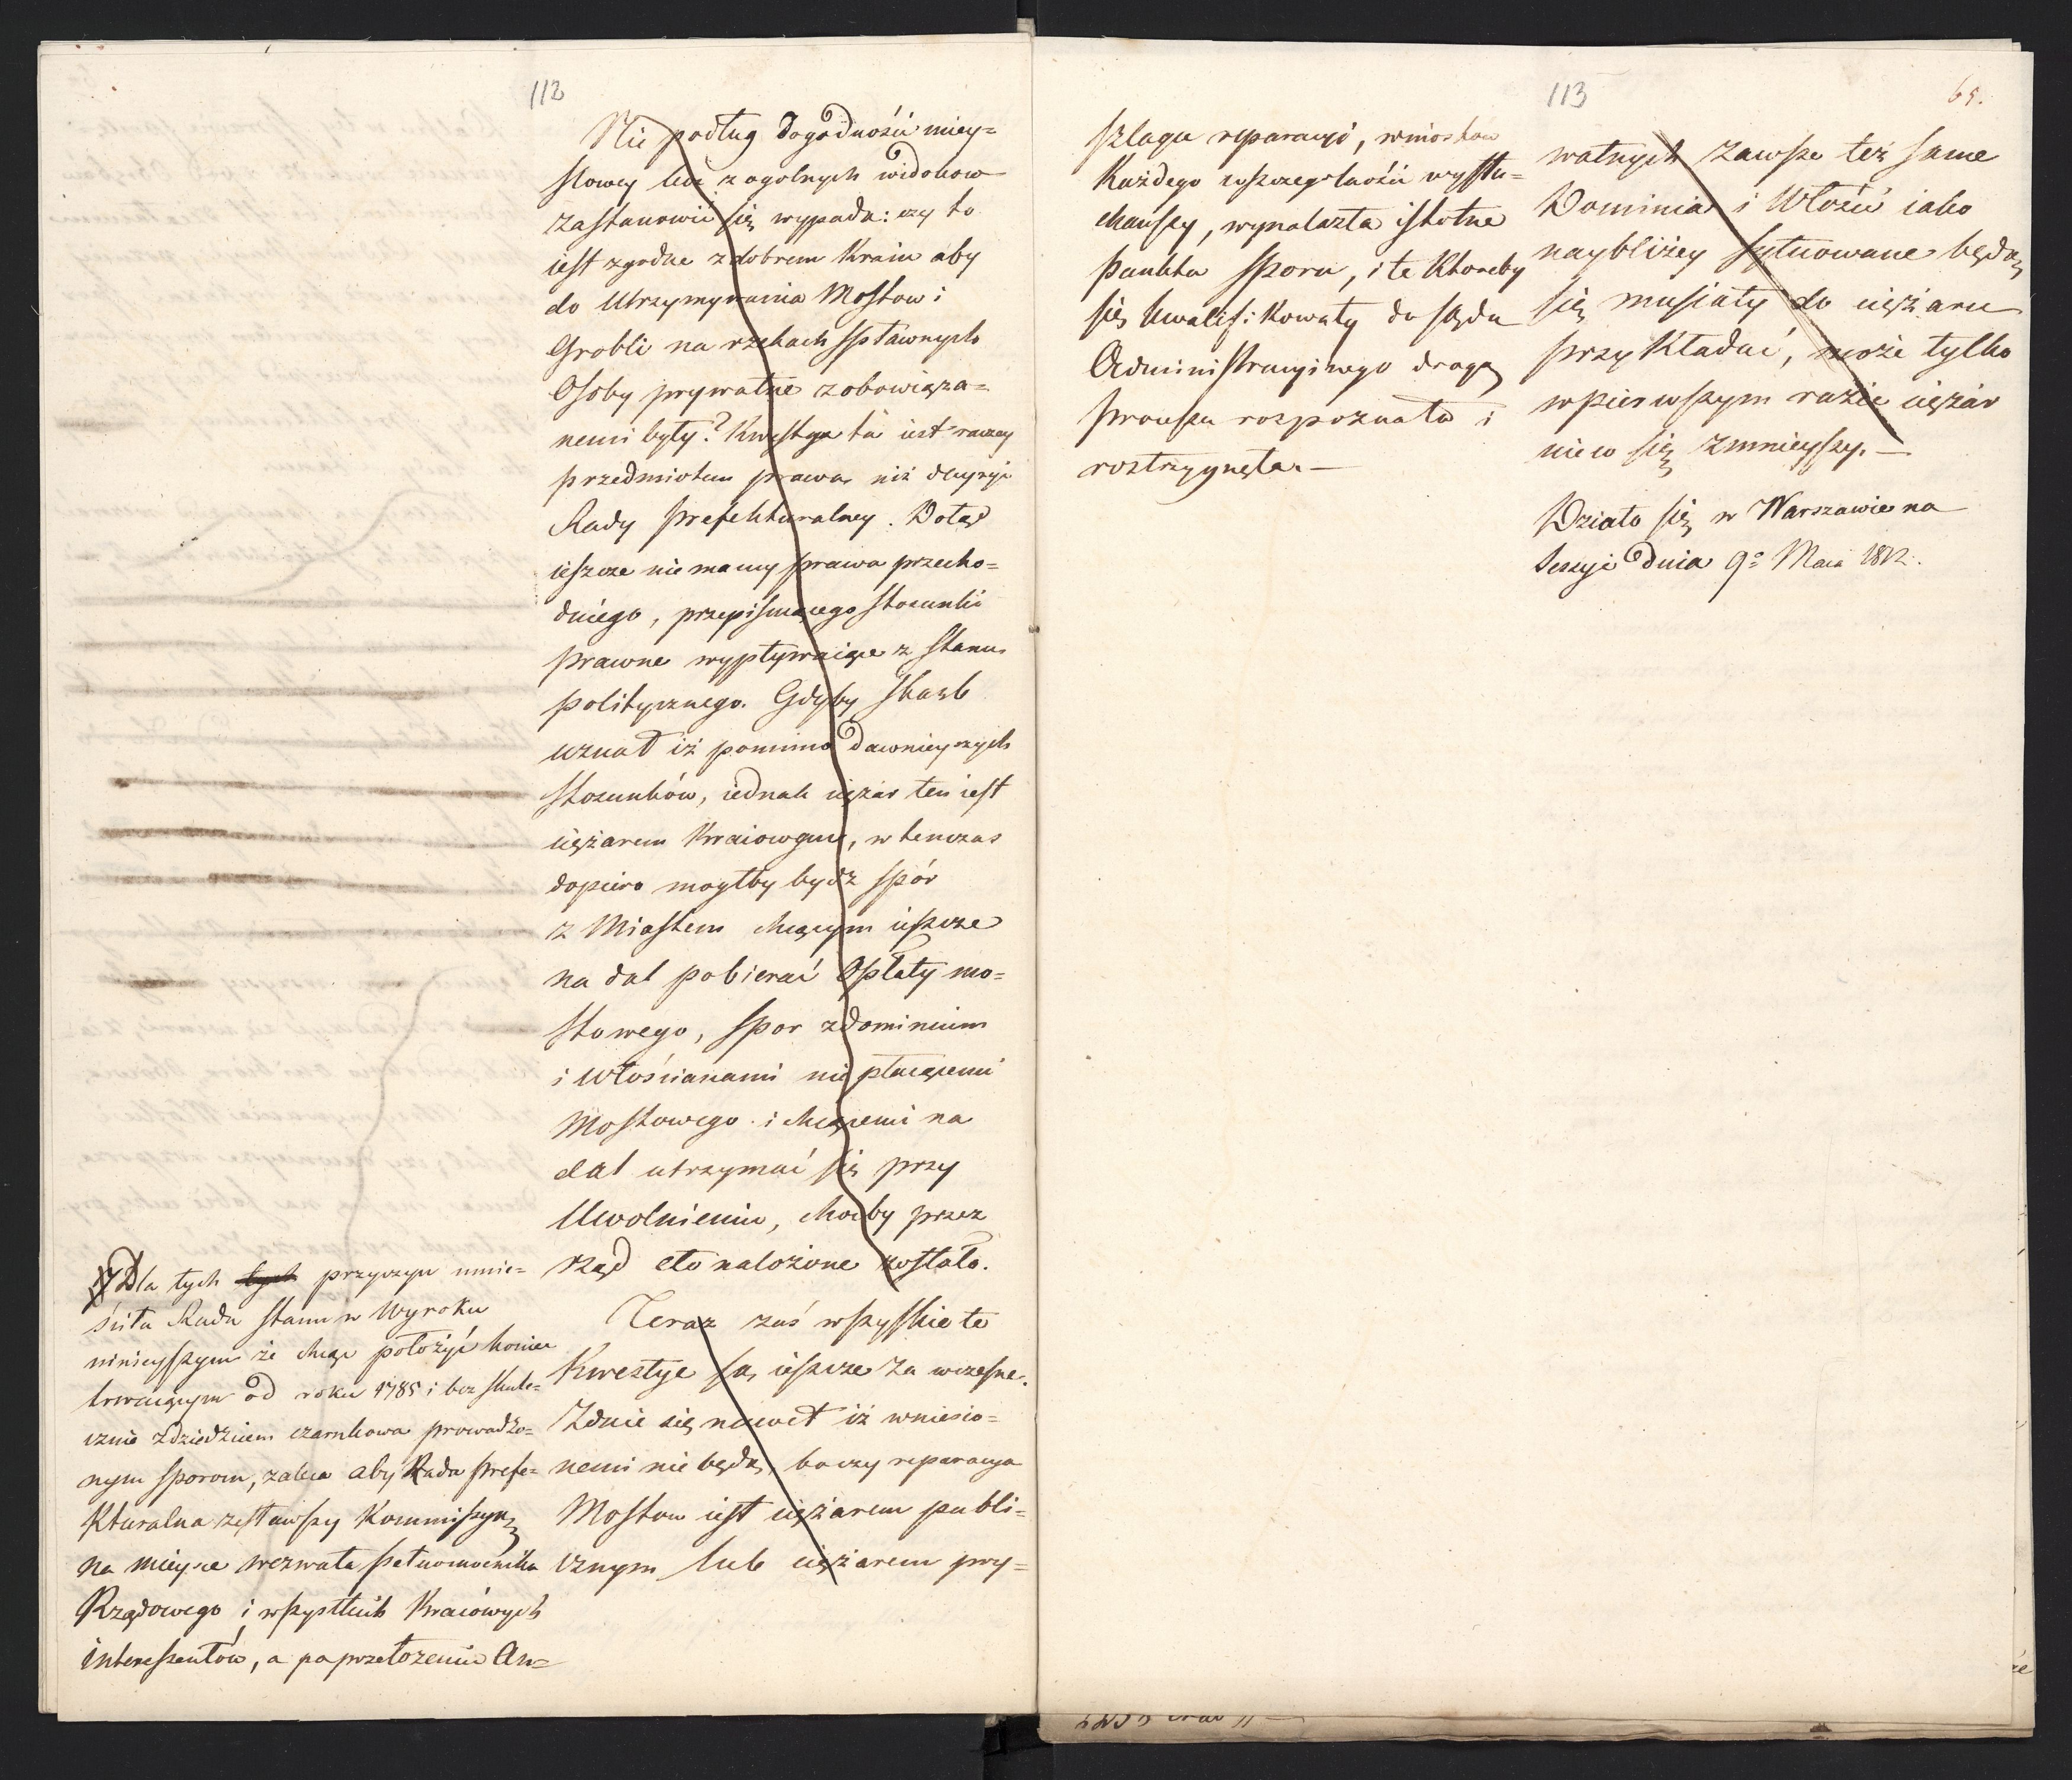 112
Nie podług dogodności miey=
słowey lecz z ogolnych widokow
zastanowić się wypada: czy to
iest zgodne z dobrem Kraiu aby
do Utrzymywania Mostow i
Grobli na rzekach spławnych
Osoby prywatne zobowiąza=
nemi były? Kwestya ta iest raczey
przedmiotem prawa, niż decyzyi
Rady Prefekturalney. Dotąd
ieszcze nie mamy prawa przecho=
dniego, przepisuiącego stosunki
prawne wypływaiące z stanu
politycznego. Gdyby Skarb
uznał iż pomimo dawnieyszych
stosunków, iednak ciężar ten iest
ciężarem Kraiowym, w tenczas
dopiero mogłby bydź spór
z Miastem chcącym ieszcze
na dal pobierać Opłaty mo=
stowego, spor z dominium
i Włościanami nie płacącemi
Mostowego i chcącemi na
dal utrzymać się przy
Uwolnieniu, choćby przez
rząd cło nałożone zostało.
Teraz zaś wszystkie te
Kwestye są ieszcze za wczesne.
Zdaie się nawet iż wniesio=
nemi nie będą, bo czy reparacya
Mostow iest ciężarem publi=
cznym lub ciężarem pry=
Dla tych tych przyczyn umie=
ściła Rada Stanu w Wyroku
ninieyszym że chcąc położyć koniec
trwaiącym od roku 1785 i bez skute=
cznie z dziedzicem Czarnkowa prowadzo=
nym sporom, zaleca aby Rada Prefe=
Kturalna zesławszy Kommissyą
na mieysce wezwała pełnomocnika
Rządowego i wszystkich Kraiówych
interessentów, a po przełożeniu An=
113
65.
szlagu reparacyi, wniosków
Każdego w szczegolności wysłu=
chawszy, wynalazła istotne
punkta sporu, i te Ktoreby
się kwalifikowały do sądu
Administracyinego drogą
processu rozpoznała i
rozstrzygnęła.—
watnych zawsze też same
Dominia i Włość iako
naybliżey sytuowane będą
się musiały do ciężaru
przykładać, może tylko
w pierwszym razie ciężar
nieco się zmnieyszy.—
Działo się w Warszawie na
Sessyi dnia 9o Maia 1812.